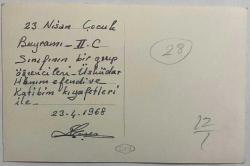 23 Nisan Çocuk
Bayramı - II. C
Sınıfının bir grup
öğrencileri Üsküdar
Hanımefendi ve
Katibim kıyafetleri
ile
23.4.1968
23
12/1